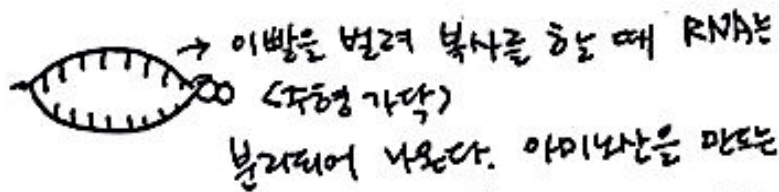 → 이빨을 벌려 복사를 할 때 RNA는
<주형 가닥>
분리되어 나온다. 아미노산을 만드는